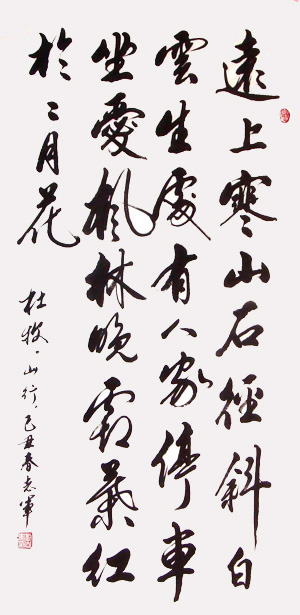 遠上寒山石徑斜白
雲生處有人家停車
坐愛楓林晚霜葉紅
於二月花
杜牧。山行，己丑春志軍